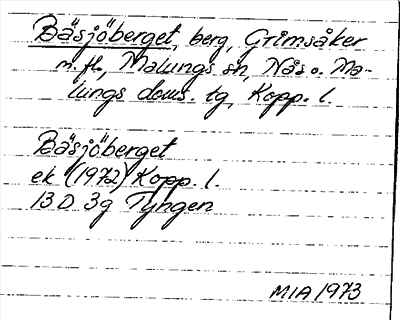 Bäsjöberget, berg, Grimsåker
m.fl., Malungs sn, Nås o. Ma-
lungs doms. tg, Kopp. l.
Bäsjöberget
ek (1972) Kopp. l.
13D 3g Tyngen
MIA 1973